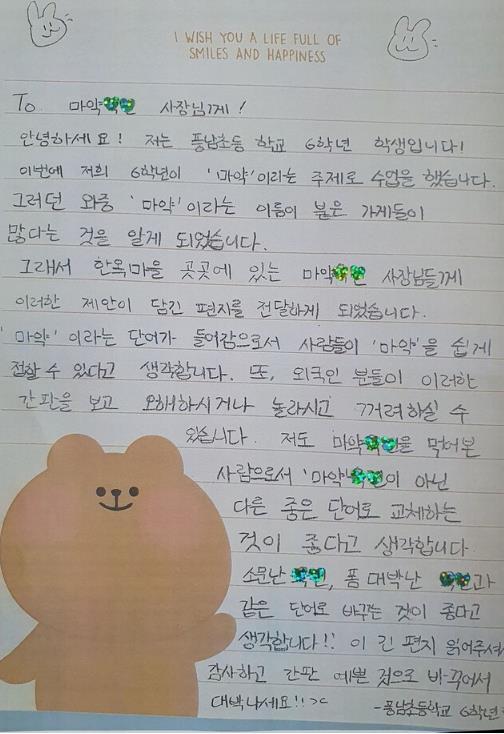 I WISH YOU A LIFE FULL OF
SMILES AND HAPPINESS
To 마약 사장님께!
안녕하세요! 저는 풍남초등 학교 6학년 학생입니다!
이번에 저희 6학년이 '마약'이라는 주제로 수업을 했습니다.
그러던 와중 '마약'이라는 이름이 붙은 가게들이
많다는 것을 알게 되었습니다.
그래서 한옥마을 곳곳에 있는 마약 사장님들께
이러한 제안이 담긴 편지를 전달하게 되었습니다.
'마약'이라는 단어가 들어감으로서 사람들이 '마약'을 쉽게
접할 수 있다고 생각합니다. 또, 외국인 분들이 이러한
간판을 보고 오해하시거나 놀라시고 꺼려하실 수
있습니다. 저도 마약을 먹어본
사람으로서 '마약'이 아닌
다른 좋은 단어로 교체하는
것이 좋다고 생각합니다
소문난 , 폼 대박난 과
같은 단어로 바꾸는 것이 좋다고
생각합니다!! 이 긴 편지 읽어주셔서
감사하고 간판 예쁜 것으로 바꾸어서
대박나세요!!><
-풍남초등학교 6학년